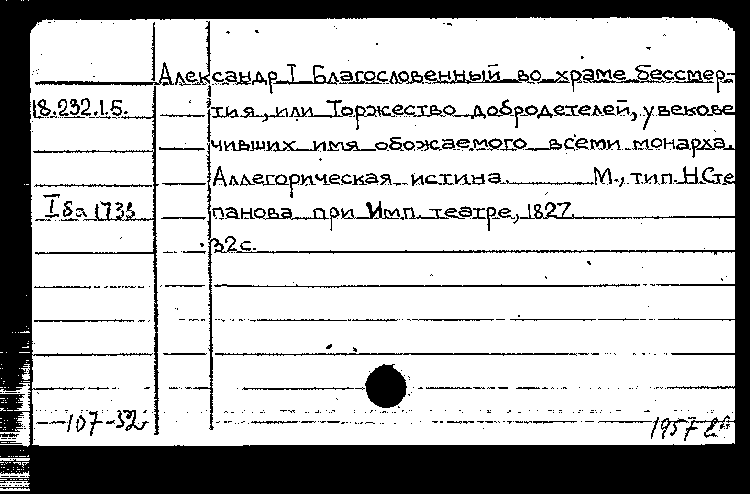 Александр I Благословенный во храме бессмер-
18.232.1.5. тия, или Торжество добродетелей, увекове
чивших имя обожаемого всеми монарха.
Аллегорическая истина. М., тип. Н.Сте
I ба 1733 панова при Имп. театре, 1827.
32 с.
107-52 1957